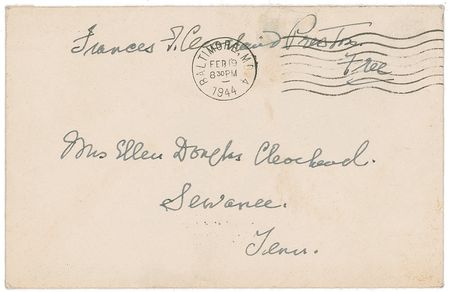 Frances F. Cleveland Preston.
Free
BALTIMORE, MD.
FEB 19
8 30 PM
1944
4
Mrs Ellen Douglas Cleveland.
Sewanee.
Tenn.